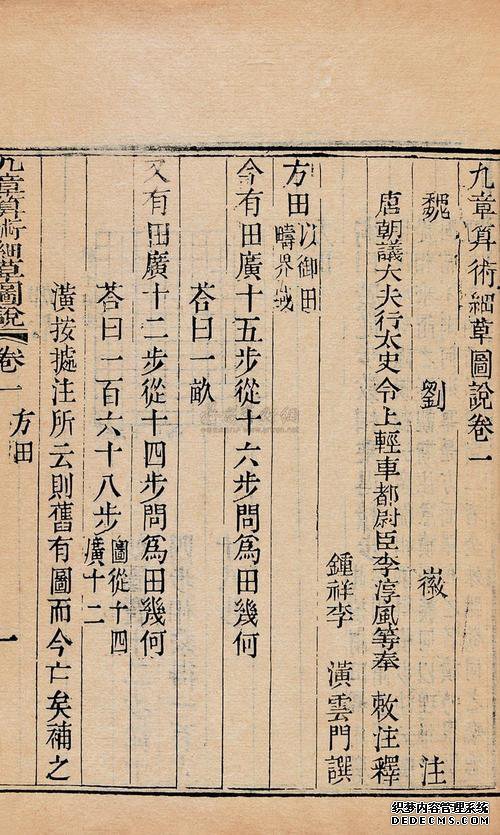 九章算術細草圖說卷一
魏 劉 徽 注
唐朝議大夫行太史令上輕車都尉臣李淳風等奉 敕注釋
鍾祥李 潢雲門譔
方田以御田疇界域
今有田廣十五步從十六步問爲田幾何
荅曰一畝
又有田廣十二步從十四步問爲田幾何
荅曰一百六十八步圖從十四廣十二
潢按據注所云則舊有圖而今亡矣補之
九章算術細草圖說 卷一 方田 一
织梦内容管理系统
DEDECMS.COM